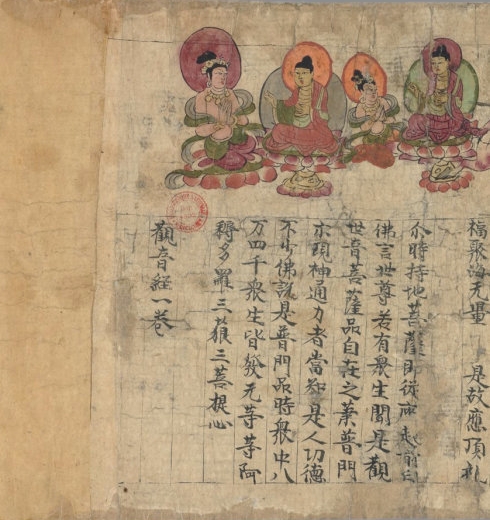 福聚海无量 是故應頂礼
尒時持地菩薩即從座起前白
佛言世尊若有衆生聞是觀
世音菩薩品自在之業普門
示現神通力者當知是人功德
不少佛說是普門品時衆中八
万四千衆生皆發无等等阿
耨多羅三藐三菩提心
觀音經一卷